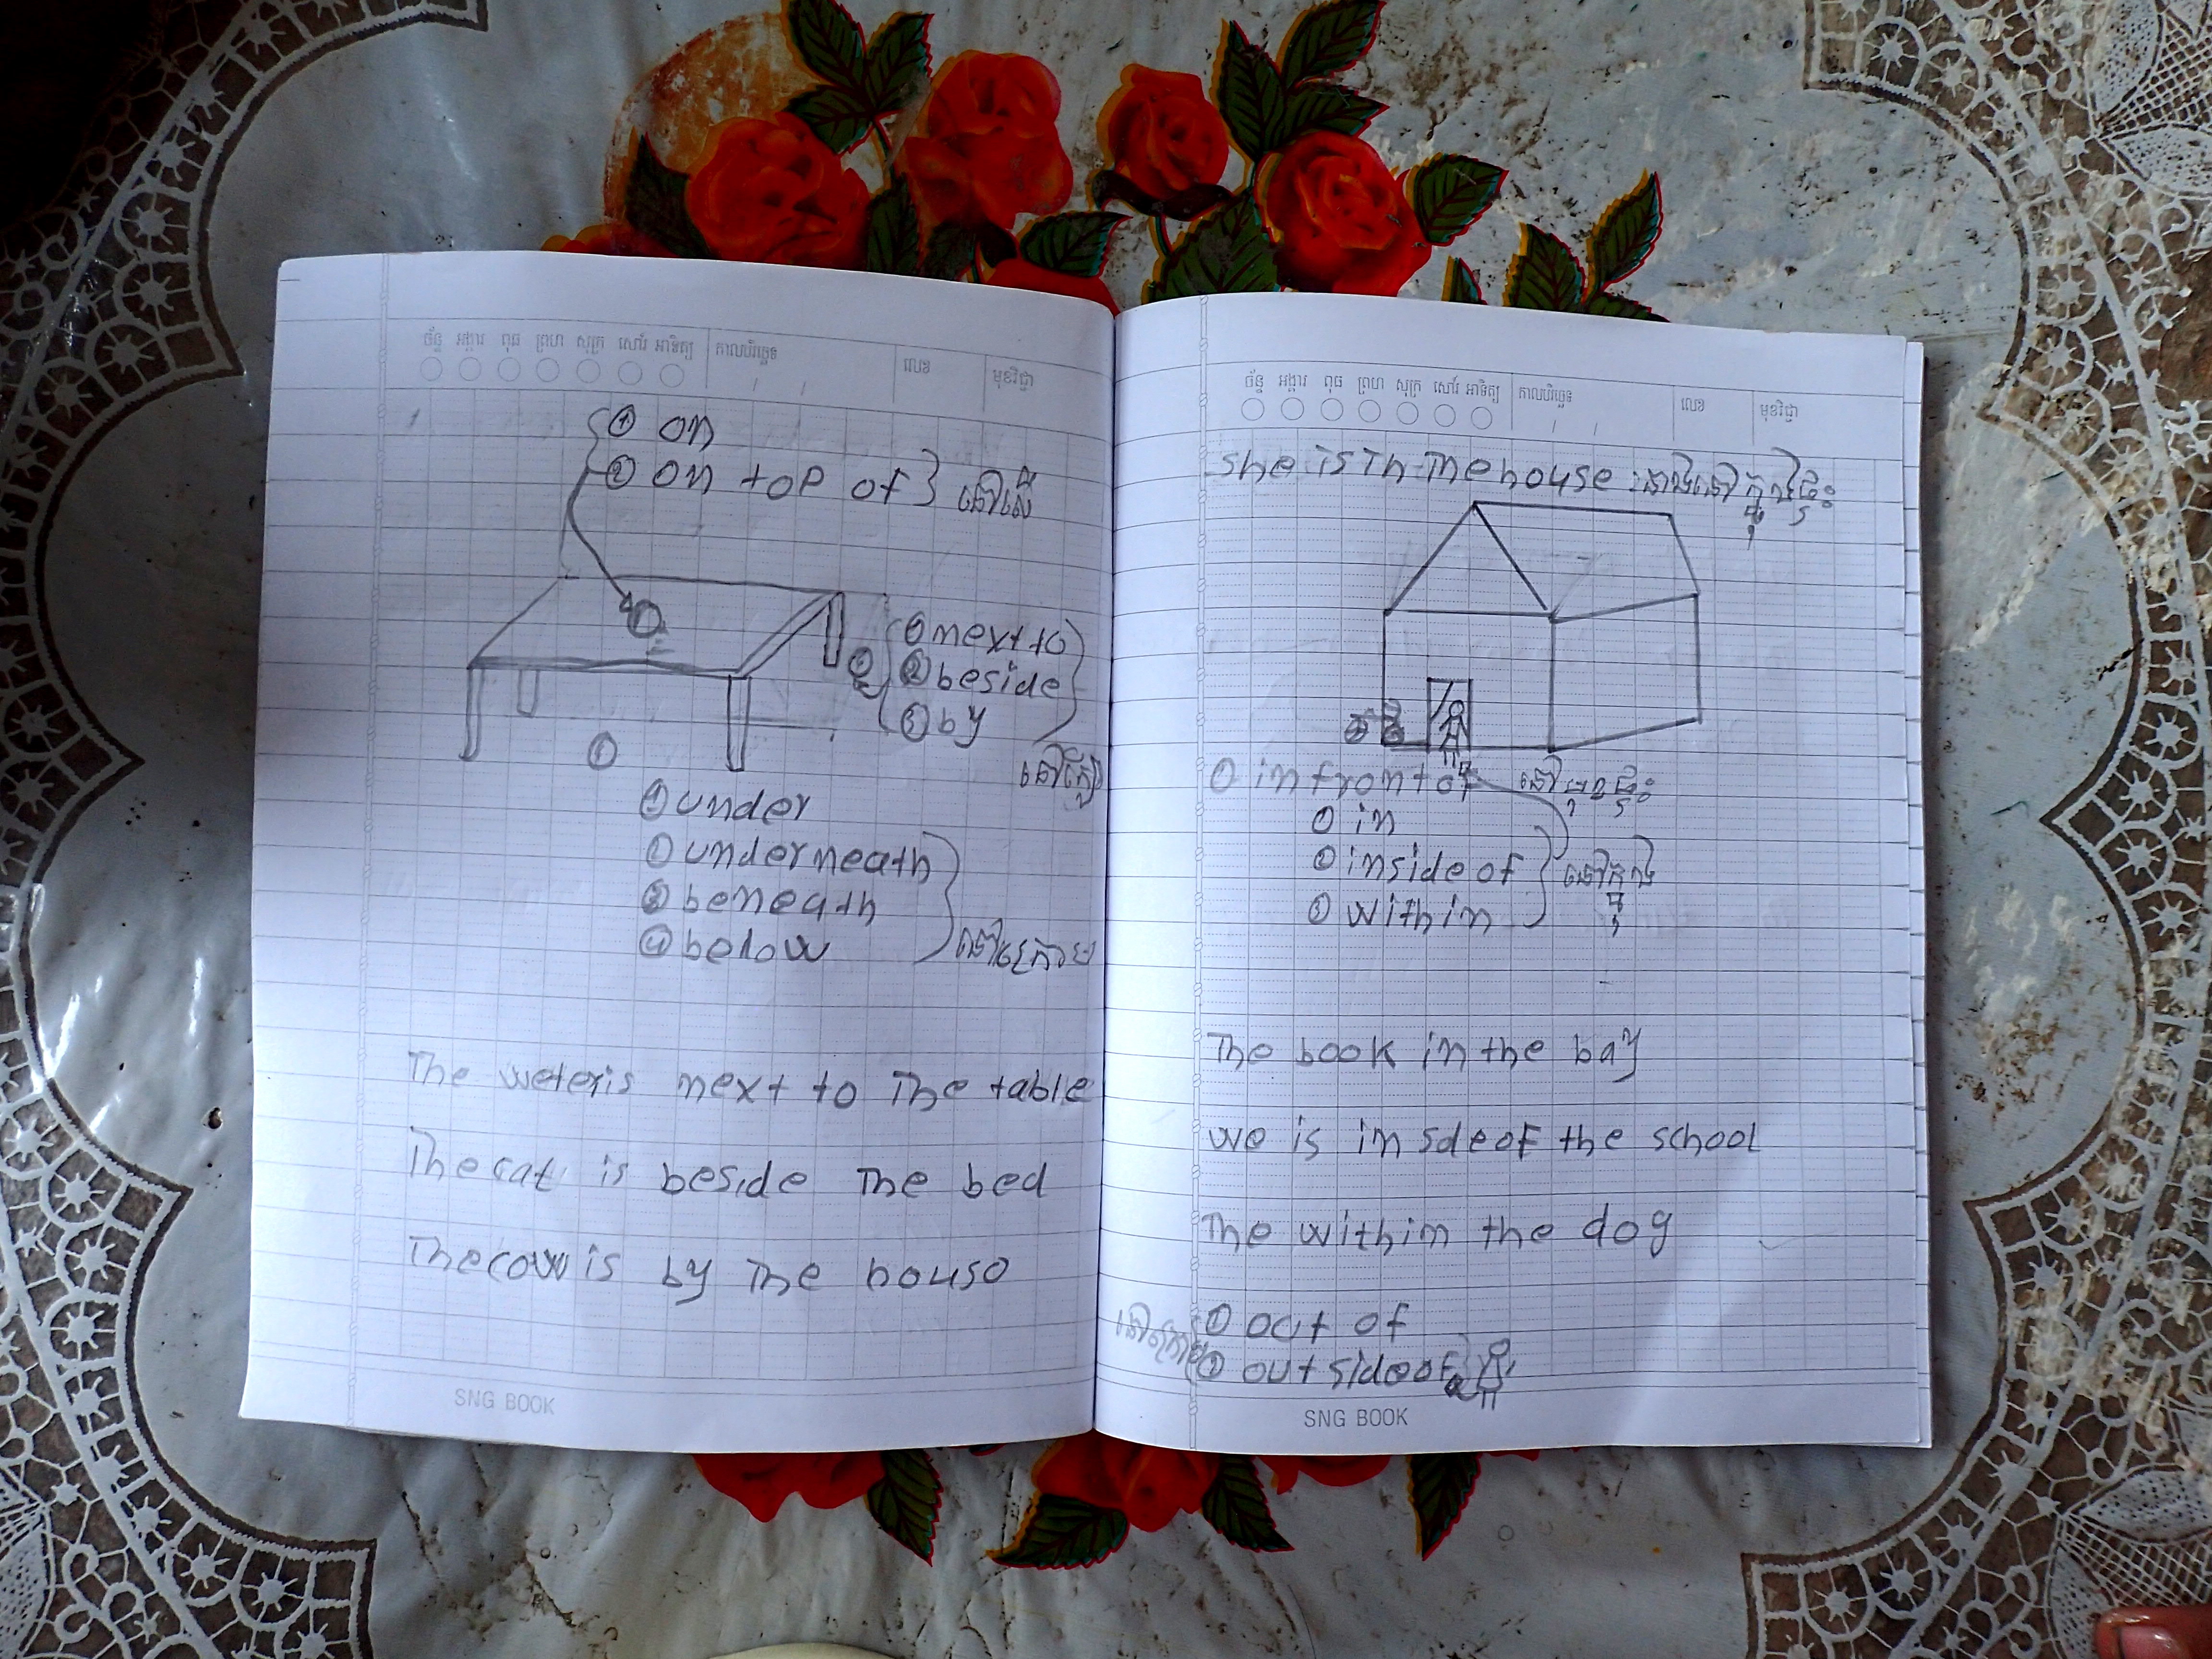 ច័ន្ទ អង្គារ ពុធ ព្រហ សុក្រ សៅរ៍ អាទិត្យ កាលបរិច្ឆេទ លេខ មុខវិជ្ជា
① on
② on top of } នៅលើ
① next to
② beside
③ by
នៅក្បែរ
① under
② underneath
③ beneath
④ below
នៅក្រោម
The weteris next to The table
The cat is beside The bed
The cow is by The houso
SNG BOOK
ច័ន្ទ អង្គារ ពុធ ព្រហ សុក្រ សៅរ៍ អាទិត្យ កាលបរិច្ឆេទ លេខ មុខវិជ្ជា
she is in The house : នាងនៅក្នុងផ្ទះ
① in front of នៅមុខផ្ទះ
① in
② inside of
③ within
នៅក្នុង
The book in the bay
we is in sdeof the school
The within the dog
① out of
② out sideof
SNG BOOK